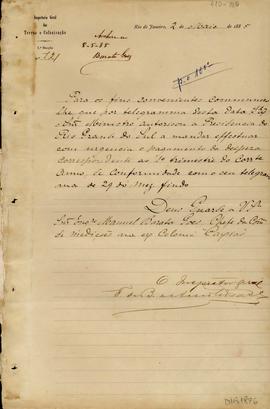 Inspectoria Geral
das
Terras e Colonisação
Rio de Janeiro, 2 de Maio de 1885
8-5-85
Para os fins convenientes communico
lhe que por telegramma desta data S. Ex.
o Snr. Ministro autorisou a Presidencia do
Rio Grande do Sul a mandar effectuar
com urgencia o pagamento da despeza
correspondente ao 1º trimestre do corrte
anno, de conformidade com o seu telegram
ma de 29 do mez findo
Deus Guarde a V.S.
Snr. Engo. Manuel Barata Goes, Chefe da Com.
de medições na ex Colonia Caxias
O Inspector geral